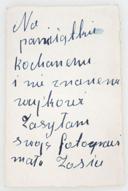 Na
pamiątkę
kochanemu
i nie znanemu
wujkowi
Zasyłam
swoją fotografi
mała Zosia